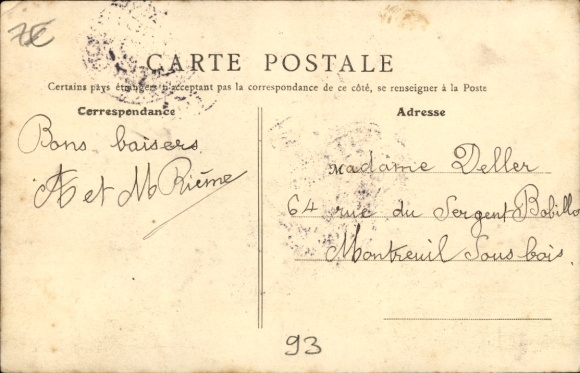 7€
CARTE POSTALE
Certains pays étrangers n'acceptant pas la correspondance de ce côté, se renseigner à la Poste
Correspondance
Bons baisers
A et M Rième
Adresse
Madame Deller
64 rue du Sergent Bobillo
Montreuil Sous bois.
93